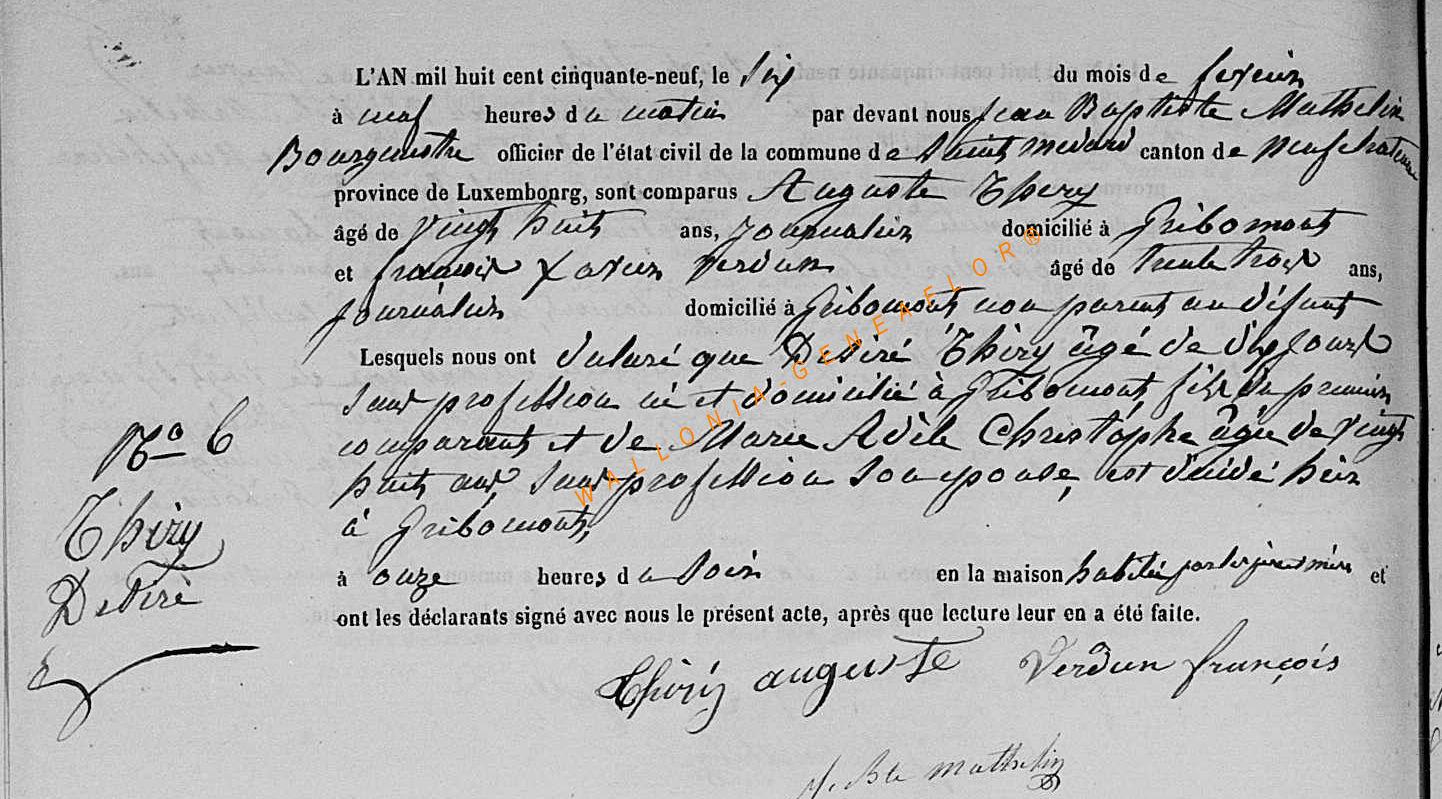 L'AN mil huit cent cinquante-neuf, le six du mois de fevrier
à neuf heures du matin par devant nous Jean Baptiste Mathelin
Bourgmestre officier de l'état civil de la commune de Saint Medard canton de Neufchateau
province de Luxembourg, sont comparus Auguste Thiry
âgé de vingt huit ans, journalier domicilié à Gribomont
et françois Xavier Verdun âgé de trente trois ans,
journalier domicilié à Gribomont non parent au défunt
Lesquels nous ont déclaré que Désiré Thiry âgé de dix jours
sans profession né et domicilié à Gribomont fils du premier
comparant et de Marie Adèle Christophe âgée de vingt
N° 6
huit ans, sans profession son epouse, est décédé hier
à Gribomont,
Thiry
Désiré
à onze heures du soir en la maison habitée par les père et mère et
ont les déclarants signé avec nous le présent acte, après que lecture leur en a été faite.
Thiry auguste Verdun françois
J. Bte Mathelin
WALLONIA-GENEAFLOR®